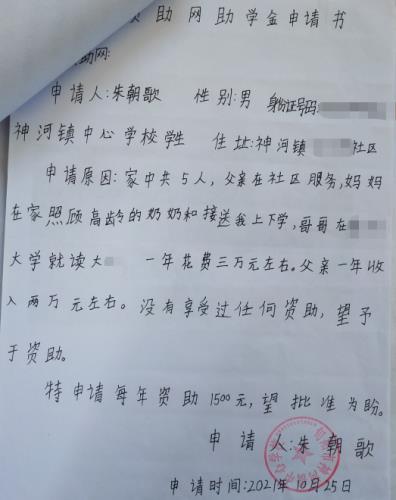 助网助学金申请书
助网:
申请人:朱朝歌 性别:男 身份证号码:
神河镇中心学校学生 住址:神河镇 社区
申请原因:家中共5人,父亲在社区服务,妈妈
在家照顾高龄的奶奶和接送我上下学,哥哥在
大学就读大 一年花费三万元左右。父亲一年收
入两万元左右。没有享受过任何资助,望予
于资助。
特申请每年资助1500元,望批准为盼。
申请人:朱朝歌
申请时间:2021年10月25日